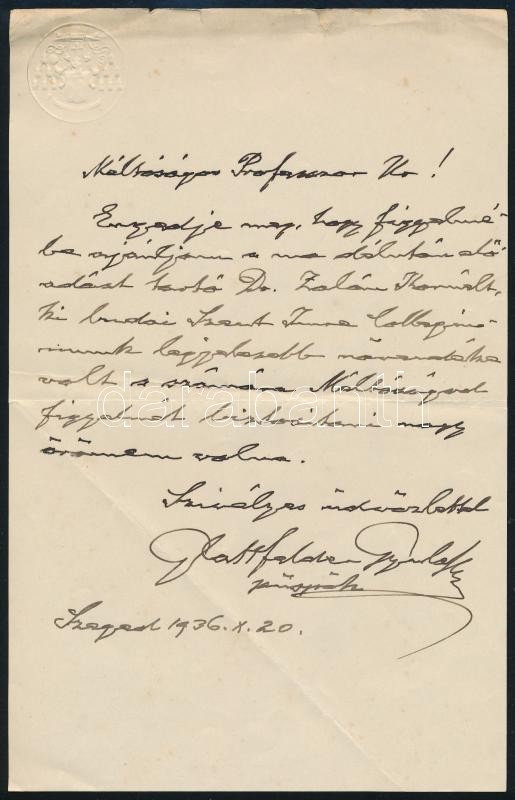 Méltóságos Professzor Ur!
Engedje meg, hogy figyelmé-
be ajánljam a ma délután elő-
adást tartó Dr. Zalán Kornélt,
ki budai Szent Imre Collegiu-
munk legjelesebb növendéke
volt s számára Méltóságod
figyelmét biztosítani nagy
örömem volna.
Szivélyes üdvözlettel
Glattfelder Gyula
püspök
Szeged 1936. X. 20.
darabanth